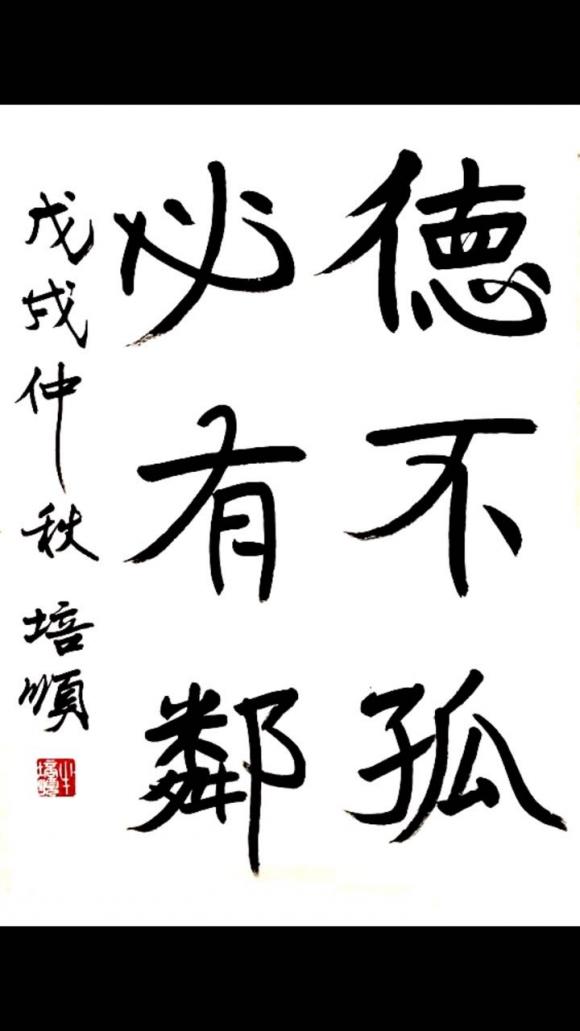 德不孤
必有鄰
戊戌仲秋 培順